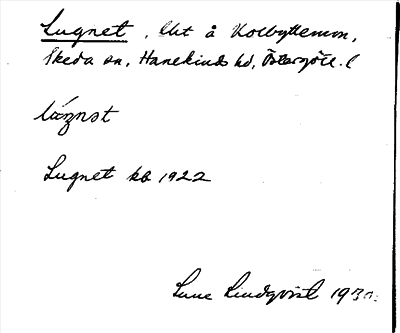 Lugnet, lht å Kolbyttemon,
Skeda sn, Hanekinds hd, Östergötl. l
Lugnet kb 1922
Sune Lindqvist 1930